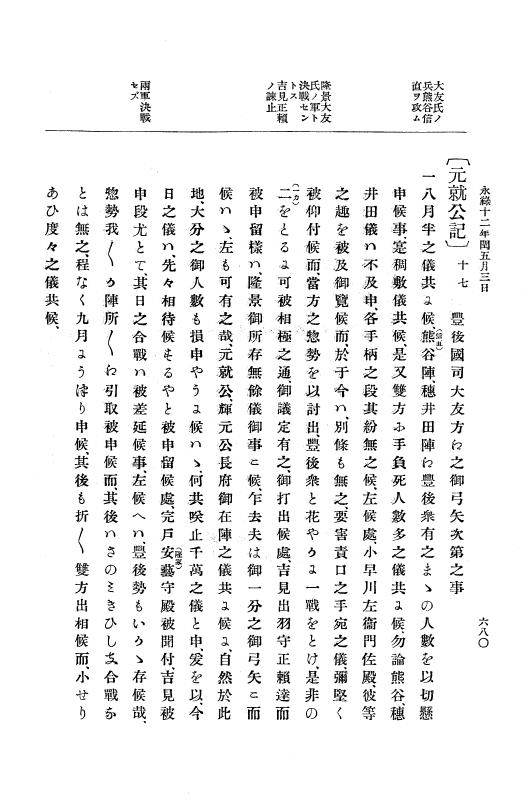 永祿十二年閏五月三日
六八〇
大友氏ノ
兵熊谷信
直ヲ攻ム
隆景大友
氏ノ軍ト
決戰セン
トス
吉見正賴
ノ諫止
兩軍決戰
セズ
〔元就公記〕 十七 豐後國司大友方ゟ之御弓矢次第之事
一八月半之儀共ニ候、熊谷(信直)陣、穗井田陣ゟ豐後衆有之まゝの人數を以切懸
申候事、寔稠敷儀共候、是又雙方ニ手負死人數多之儀共ニ候、勿論熊谷、穗
井田儀ハ不及申、各手柄之段其紛無之候、左候處、小早川左衞門佐殿、彼等
之趣を被及御覽候而、於于今ハ、別條も無之、要害責口之手宛之儀彌堅く
被仰付候而、當方之惣勢を以討出、豐後衆と花やかニ一戰をとけ、是非の
二(一カ)をとるニ可被相極之通、御議定有之、御打出候處、吉見出羽守正賴達而
被申留樣ハ、隆景御所存無餘儀御事ニ候、乍去夫は御一分之御弓矢ニ而
候ハヽ、左も可有之哉、元就公、輝元公長府御在陣之儀共ニ候ニ、自然於此
地、大分之御人數も損申やうニ候ハヽ、何共咲止千萬之儀と申、爰を以、今
日之儀ハ、先々相待候へるやと被申留候處、宍戶安藝守(隆家)殿被聞付、吉見被
申段尤とて、其日之合戰ハ被差延候事、左候へハ、豐後勢もいかゝ存候哉、
惣勢我〳〵か陣所〳〵ゟ引取被申候而、其後ハさのミきひしき合戰な
とは無之、程なく九月ニうはり申候、其後も折〳〵雙方出相候而、小せり
あひ度々之儀共候、